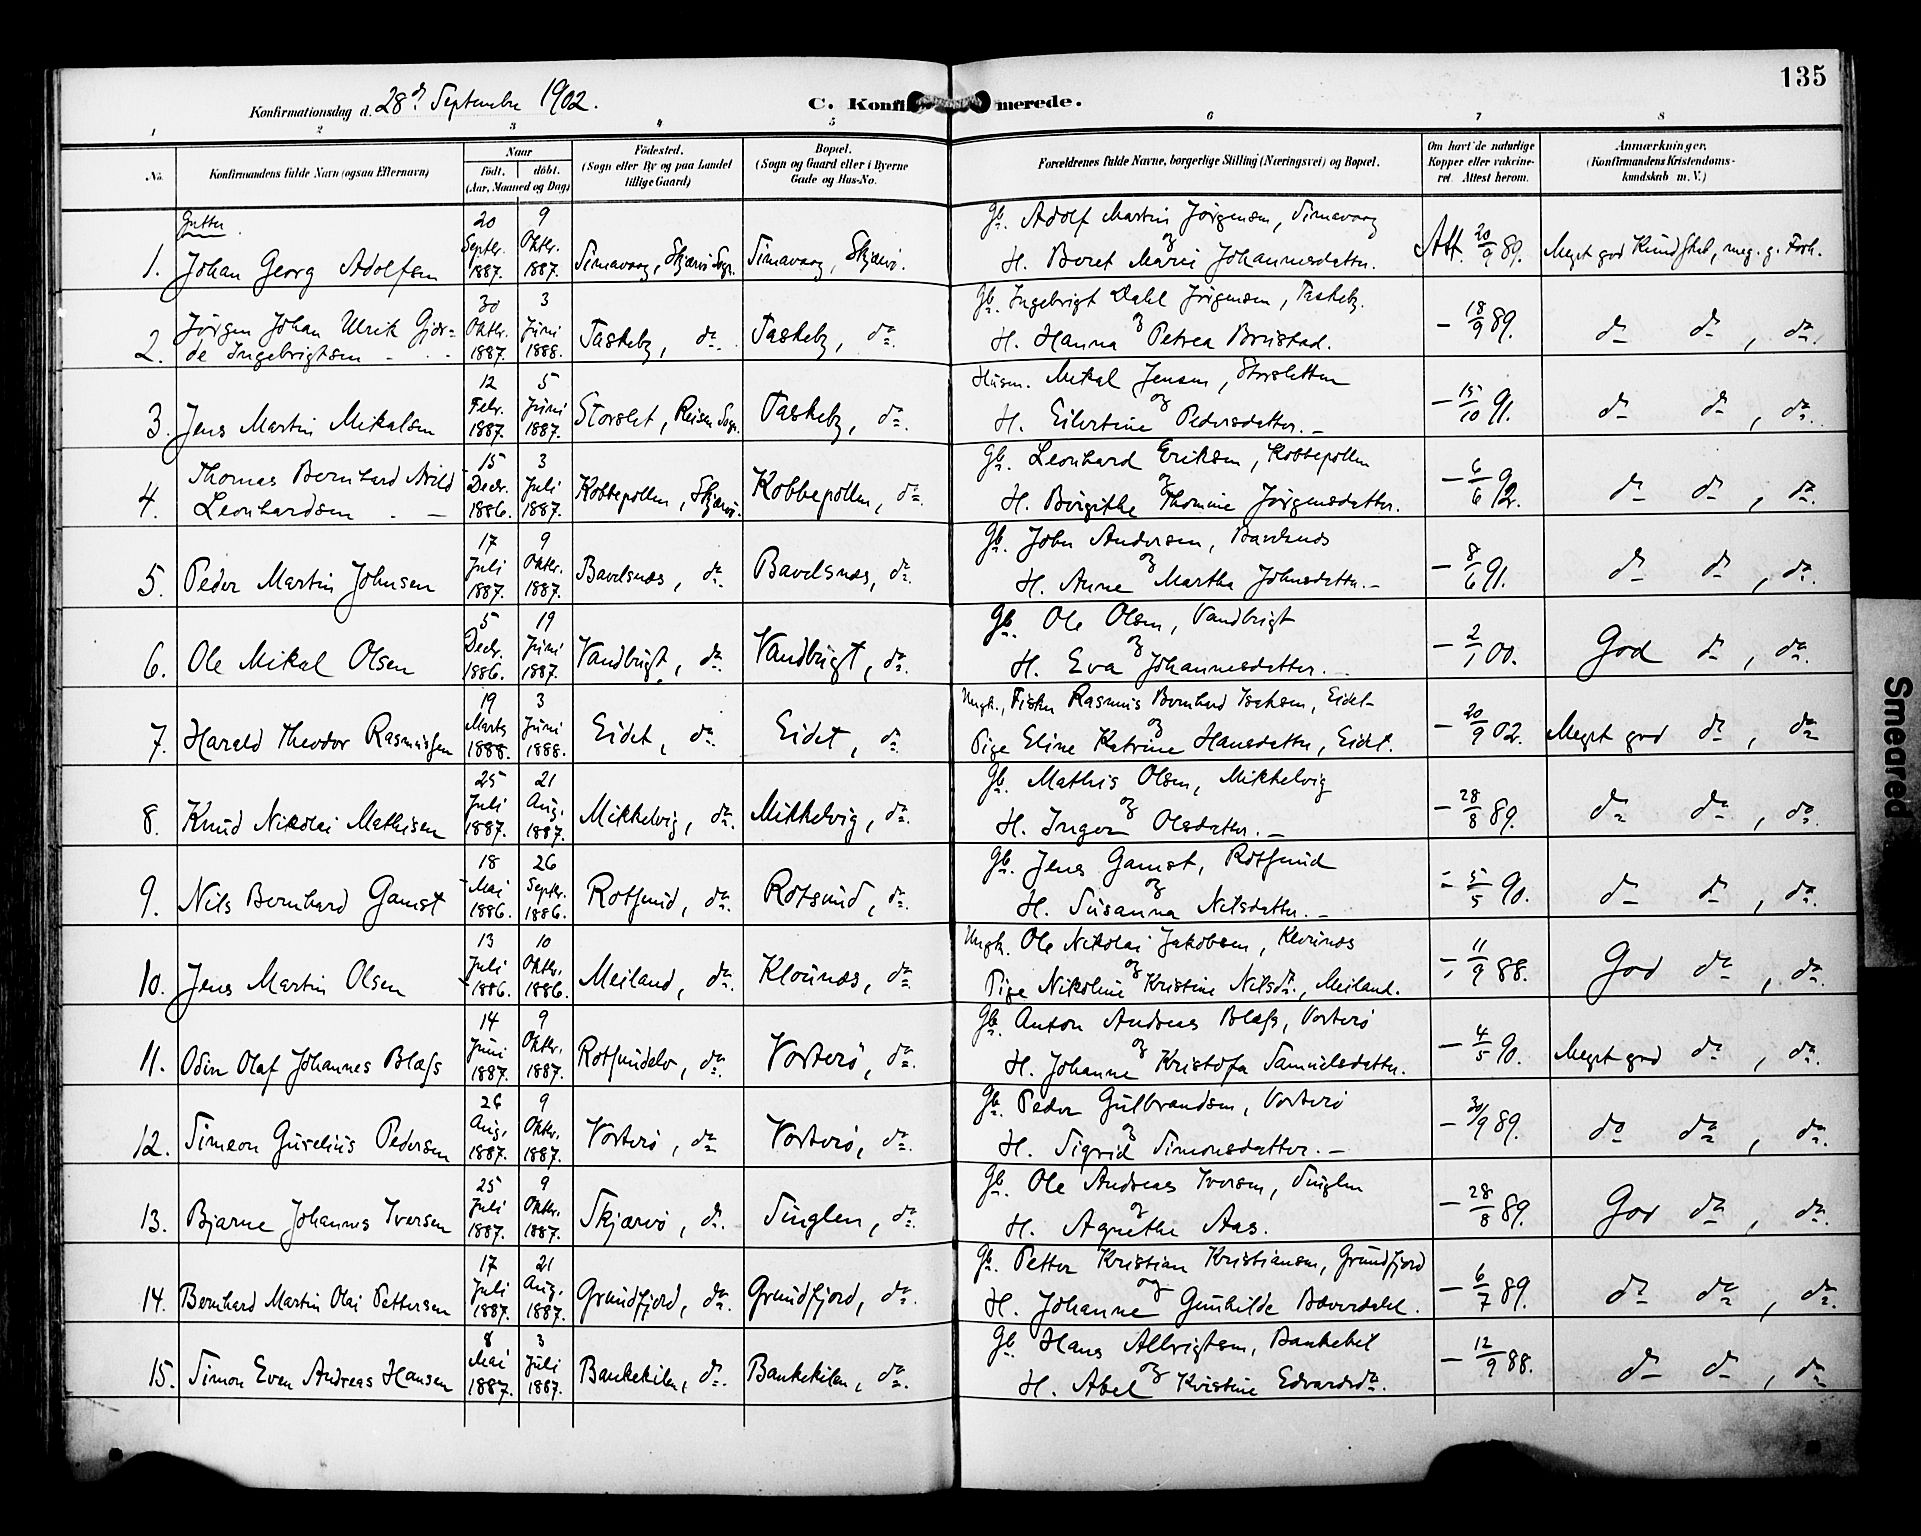 135
Konfirmationsdag d. 28de September 1902.
C. Konfirmerede.
1 2 3 4 5 6 7 8
No.
Konfirmandens fulde Navn (ogsaa Efternavn)
Naar
født. døbt.
(Aar, Maaned og Dag)
Fødested.
(Sogn eller By og paa Landet
tillige Gaard)
Bopæl.
(Sogn og Gaard eller i Byerne
Gade og Hus-No.
Forældrenes fulde Navne, borgerlige Stilling (Næringsvei) og Bopæl.
Om havt de naturlige
Kopper eller vakcine-
ret. Attest herom.
Anmærkninger.
(Konfirmandens Kristendoms-
kundskab m. V.)
Gutter.
1. Johan Georg Adolfsen
20 Septbr. 1887. 9 Oktbr. 1887.
Simavaag, Skjærvø Sogn. Simavaag, Skjærvø.
Gb. Adolf Martin Jørgensen, Simavaag
og
H. Beret Marie Johannesdatter.
Att. 20/9 89. Meget god Kundskab, meg. g. Forh.
2. Jørgen Johan Ulrik Gjør-
de Ingebrigtsen
30 Oktbr. 1887. 3 Juni 1888.
Taskeby, do. Taskeby, do.
Gb. Ingebrigt Dahl Jørgensen, Taskeby.
og
H. Hanna Petrea Brustad.
- 18/9 89. do do, do.
3. Jens Martin Mikalsen
12 Febr. 1887. 5 Juni 1887.
Storslet, Reisen Sogn. Taskeby, do.
Husm. Mikal Jensen, Storsletten
og
H. Eilertine Pedersdatter.
- 15/10 91. do do, do.
4. Thomas Bernhard Arild
Leonhardsen
15 Decbr. 1886. 3 Juli 1887.
Kobbepollen, Skjærvø. Kobbepollen, do
Gb. Leonhard Eriksen, Kobbepollen
og
H. Birgithe Thomine Jørgensdatter.
- 6/6 92. do do, do.
5. Peder Martin Johnsen
17 Juli 1887. 9 Oktbr. 1887.
Bavelsnæs, do. Bavelsnæs, do.
Gb. John Andersen, Bavelsnæs
og
H. Anne Martha Johnsdatter.
- 8/6 91. do do, do.
6. Ole Mikal Olsen
5 Decbr. 1886. 19 Juni 1887.
Vandbugt, do. Vandbugt, do.
Gb. Ole Olsen, Vandbugt
og
H. Eva Johannesdatter.
- 2/1 00. God do, do.
7. Harald Theodor Rasmussen
19 Marts 1888. 3 Juni 1888.
Eidet, do Eidet, do.
Ungk., Fisker Rasmus Bernhard Isaksen, Eidet
og
Pige Eline Katrine Hansdatter, Eidet.
- 20/9 02. Meget god do, do
8. Knud Nikolai Mathisen
25 Juli 1887. 21 Aug. 1887.
Mikkelvig, do. Mikkelvig, do.
Gb. Mathis Olsen, Mikkelvig
og
H. Inger Olsdatter.
- 28/8 89. do do, do.
9. Nils Bernhard Gamst
18 Mai 1886. 26 Septbr. 1886.
Rotsund, do. Rotsund, do.
Gb. Jens Gamst, Rotsund
og
H. Susanna Nilsdatter.
- 5/5 90. do do, do.
10. Jens Martin Olsen
13 Juli 1886. 10 Oktbr. 1886.
Meiland, do. Klounæs, do
Ungk. Ole Nikolai Jakobsen, Klounæs
og
Pige Nikoline Kristine Nilsdr., Meiland.
- 11/9 88. God do, do.
11. Odin Olaf Johannes Blæss
14 Juni 1887. 9 Oktbr. 1887.
Rotsundelv, do. Vorterø, do.
Gb. Anton Andreas Blæss, Vorterø
og
H. Johanne Kristofa Samuelsdatter.
- 4/5 90. Meget god do, do.
12. Simeon Gurelius Pedersen
26 Aug. 1887. 9 Oktbr. 1887.
Vorterø, do Vorterø, do.
Gb. Peder Gulbrandsen, Vorterø
og
H. Sigrid Simonsdatter.
- 30/9 89. do do, do.
13. Bjarne Johannes Iversen
25 Juli 1887. 9 Oktbr. 1887.
Skjærvø, do. Singlen, do.
Gb. Ole Andreas Iversen, Singlen
og
H. Agnethe Aas.
- 28/8 89. God do, do.
14. Bernhard Martin Olai Pettersen
17 Juli 1887. 21 Aug. 1887.
Grundfjord, do. Grundfjord, do.
Gb. Petter Kristian Kristiansen, Grundfjord
og
H. Johanne Gunhilde Bæverdahl.
- 6/7 89. do do, do.
15. Simon Even Andreas Hansen
8 Mai 1887. 3 Juli 1887.
Bankekilen, do. Bankekilen, do.
Gb. Hans Albrigtsen, Bankekil
og
H. Abel Kristine Edvardsdr.
- 12/9 88. do do, do
Smeared